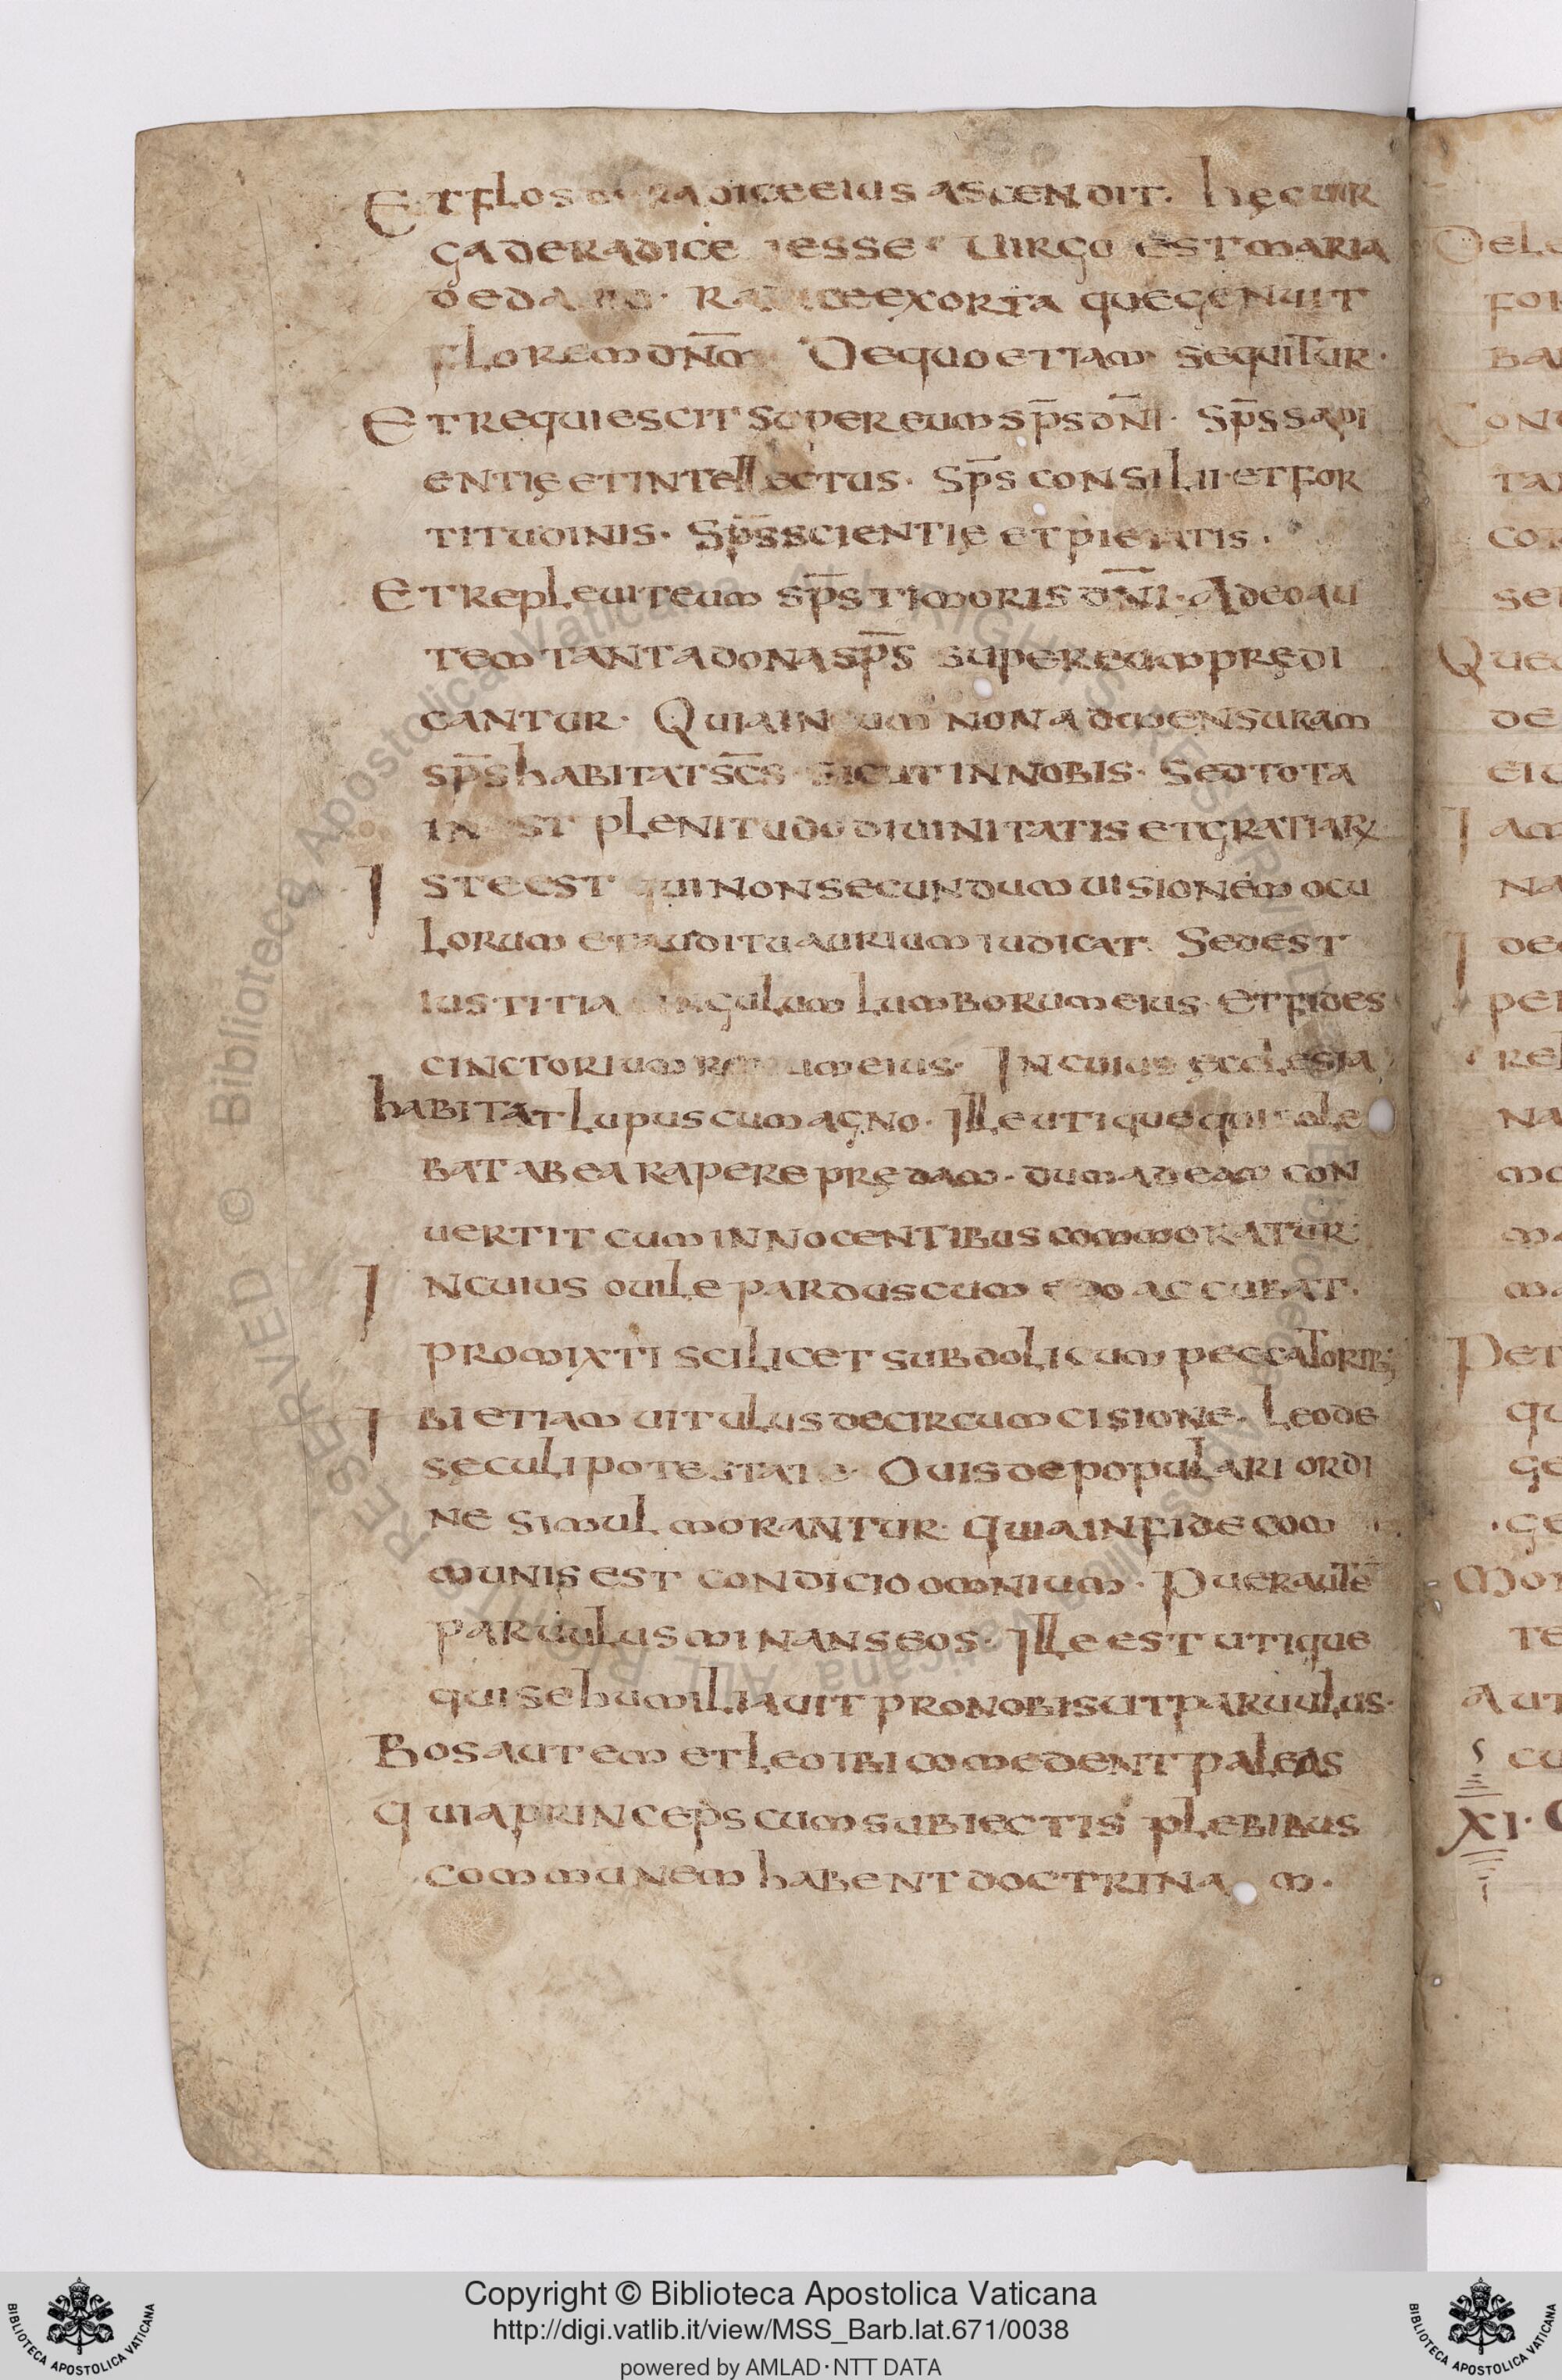 Et flos de radice eius ascendit. hęc uir
ga de radice iesse. Uirgo est maria
de dauid. Radice exorta que genuit
florem dn̅m De quo etiam sequitur.
Et requiescit super eum sp̅s dn̅i. Sp̅s sapi
entię et intellectus. Sp̅s consilii et for
titudinis. Sp̅s scientię et pietatis.
Et repleuit eum sp̅s timoris dn̅i. Adeo au
tem tanta dona sp̅s super eum prędi
cantur. Quia in eum non ad mensuram
sp̅s habitat sc̅s sicut in nobis. Sed tota
inest plenitudo diuinitatis et gratiarꝝ
Iste est qui non secundum uisionem ocu
lorum et auditu aurium iudicat. Sed est
iustitia cingulum lumborum eius. et fides
cinctorium renum eius. In cuius ęcclesia
habitat lupus cum agno. Ille utique qui sole
bat ab ea rapere prędam. dum ad eam con
uertit cum innocentibus commoratur.
In cuius ouile pardus cum edo accubat.
promixti scilicet subdoli cum peccatorib;
Ibi etiam uitulus de circumcisione. Leo de
sęculi potestate. Ouis de populari ordi
ne simul morantur. quia in fide com
munis est condicio omnium. Puer aute̅
paruulus minans eos. Ille est utique
qui se humiliauit pro nobis ut paruulus.
Bos autem et leo ibi commedent paleas
quia princeps cum subiectis plebibus
communem habent doctrinam.
Del
for
ba
Con
ta
co
se
Que
de
eiu
Iam
na
I de
per
re
na
mo
ma
ma
Pet
qu
ge
.ge
Mon
te
aut
cu
XI.
Copyright © Biblioteca Apostolica Vaticana
http://digi.vatlib.it/view/MSS_Barb.lat.671/0038
powered by AMLAD·NTT DATA